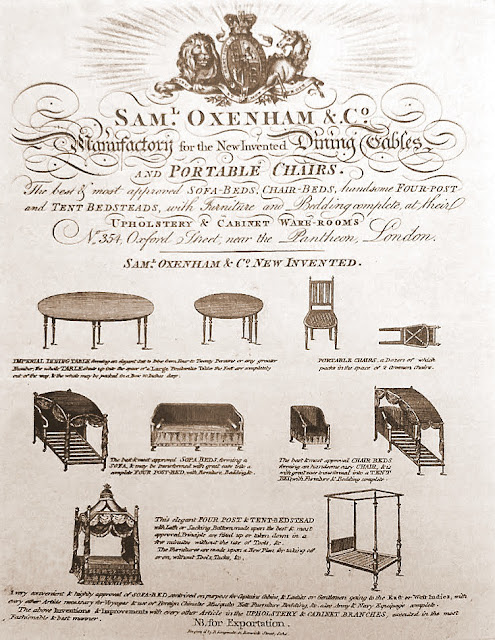 SAM.L OXENHAM & C.o
Manufactory for the New Invented Dining Tables
AND PORTABLE CHAIRS.
The best & most approved SOFA-BEDS, CHAIR-BEDS, handsome FOUR-POST
and TENT BEDSTEADS, with Furniture and Bedding complete, at their
UPHOLSTERY & CABINET WARE-ROOMS
N.o 354, Oxford Street, near the Pantheon, London.
SAM.L OXENHAM & C.o NEW INVENTED.
IMPERIAL DINING TABLE forming an elegant Set to Dine from Four to Twenty Persons or any greater
Number, the whole TABLE shuts up into the space of a Large Pembroke Table the Feet are completely
out of the way, & the whole may be packed in a Box 10 Inches deep.
PORTABLE CHAIRS, a Dozen of which
packs in the space of 2 Common Chairs.
The best & most approved SOFA BEDS, forming a
SOFA, & may be transformed with great ease into a
complete FOUR-POST BED, with Furniture, Bedding &c.
The best & most approved CHAIR BEDS
forming an handsome easy CHAIR, & is
with great ease transformed into a TENT
BED, with Furniture & Bedding complete
This elegant FOUR POST & TENT-BEDSTEAD
with Lath or Sacking Bottoms, made upon the best & most
approved Principle are fixed up or taken down in a
few minutes without the use of Tools, &c.
The Furnitures are made upon a New Plan for taking off
even, without Tools, Tacks, &c.
A very convenient & highly approved of SOFA-BED, contrived on purpose for Captains Cabins, & Ladies or Gentlemen going to the East or West Indies, with
every other Article necessary for Voyages & use of Foreign Climates Musquito Nett Furniture Bedding, &c. also Army & Navy Equipage complete.
The above Inventions & Improvements with every other Article in the UPHOLSTERY & CABINET BRANCHES, executed in the most
Fashionable & best manner.
NB. for Exportation.